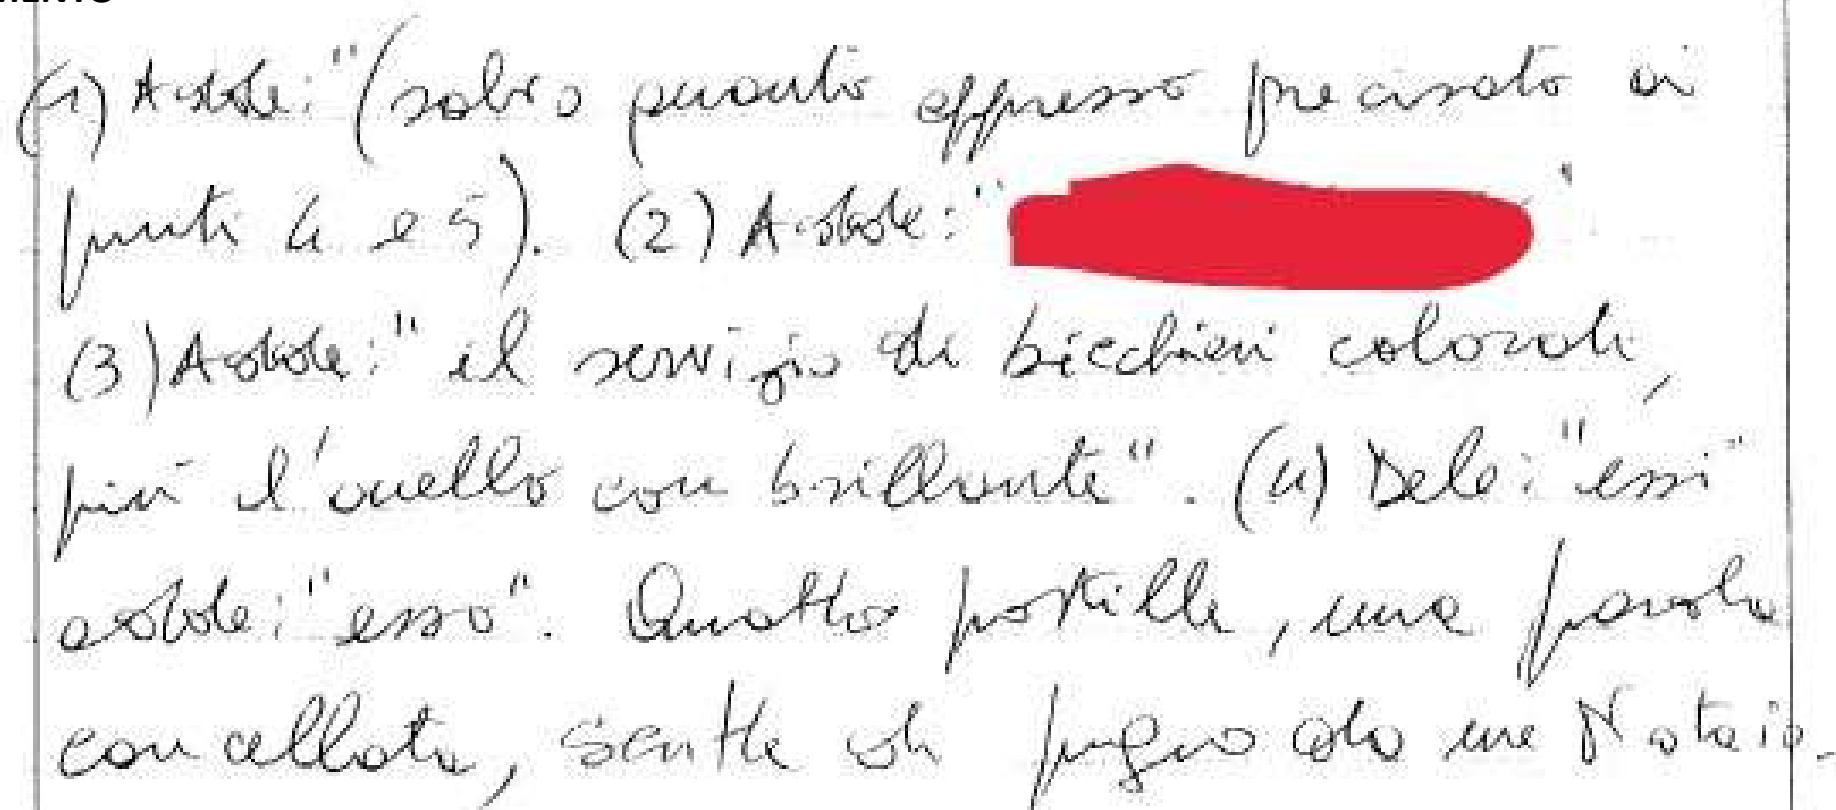 MENTO
(1) Adde: "(salvo quanto appresso precisato ai
punti 4 e 5). (2) Adde: " "
(3) Adde: " il servizio di bicchieri colorati,
più l'anello con brillante". (4) Dele: "essi"
adde: "esso". Quattro postille, una parola
cancellata, scritte di pugno da me Notaio.